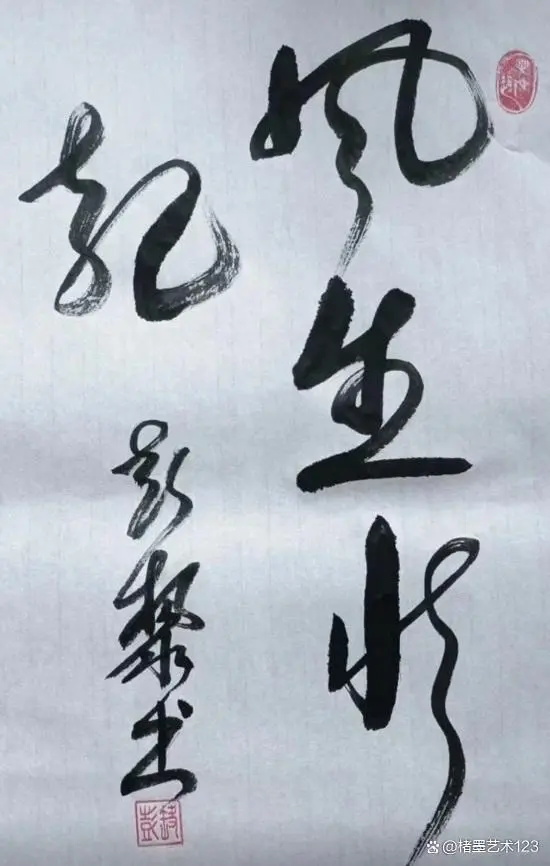 风生水
起
彭黎书
@楮墨艺术123